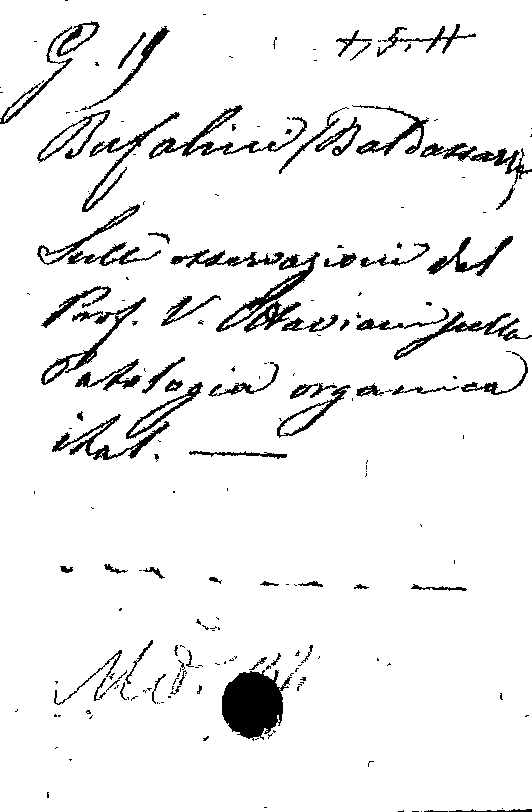 G. 19
Bufalini (Baldassarre
Sulle osservazioni del
Prof. V. Ottaviani sulla
Patologia organica
ital. —
Med.